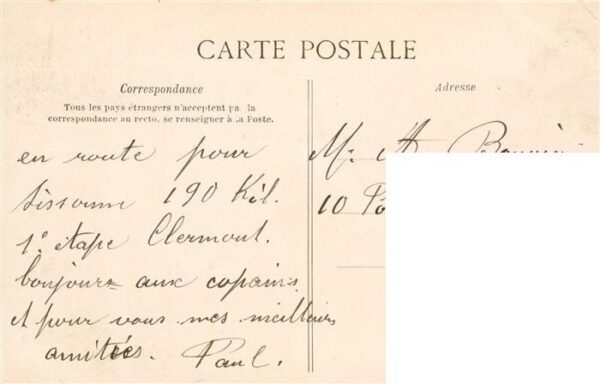 CARTE POSTALE
Correspondance
Tous les pays étrangers n'acceptent pa la
correspondance au recto, se renseigner à la Poste.
en route pour
Sissonne 190 Kil.
1e étape Clermont.
bonjour aux copains
et pour vous mes meilleurs
amitiés. Paul.
Adresse
Mr A
10